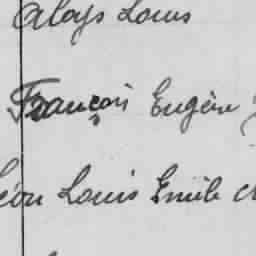 Aloys Louis
François Eugène
Léon Louis Emile